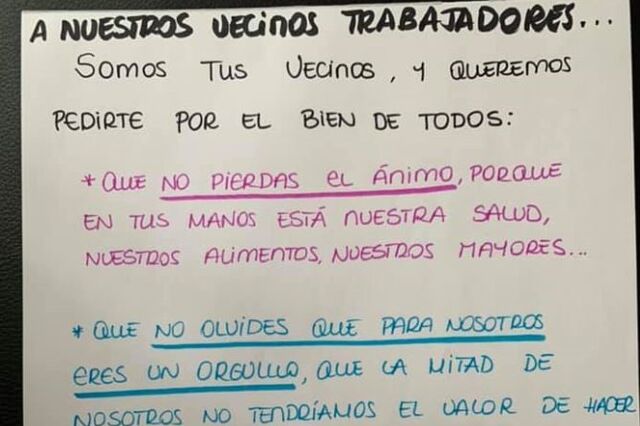 A NUESTROS VECINOS TRABAJADORES...
SOMOS TUS VECINOS, Y QUEREMOS
PEDIRTE POR EL BIEN DE TODOS:
* QUE NO PIERDAS EL ÁNIMO, PORQUE
EN TUS MANOS ESTÁ NUESTRA SALUD,
NUESTROS ALIMENTOS, NUESTROS MAYORES...
* QUE NO OLVIDES QUE PARA NOSOTROS
ERES UN ORGULLO, QUE LA MITAD DE
NOSOTROS NO TENDRÍAMOS EL VALOR DE HACER